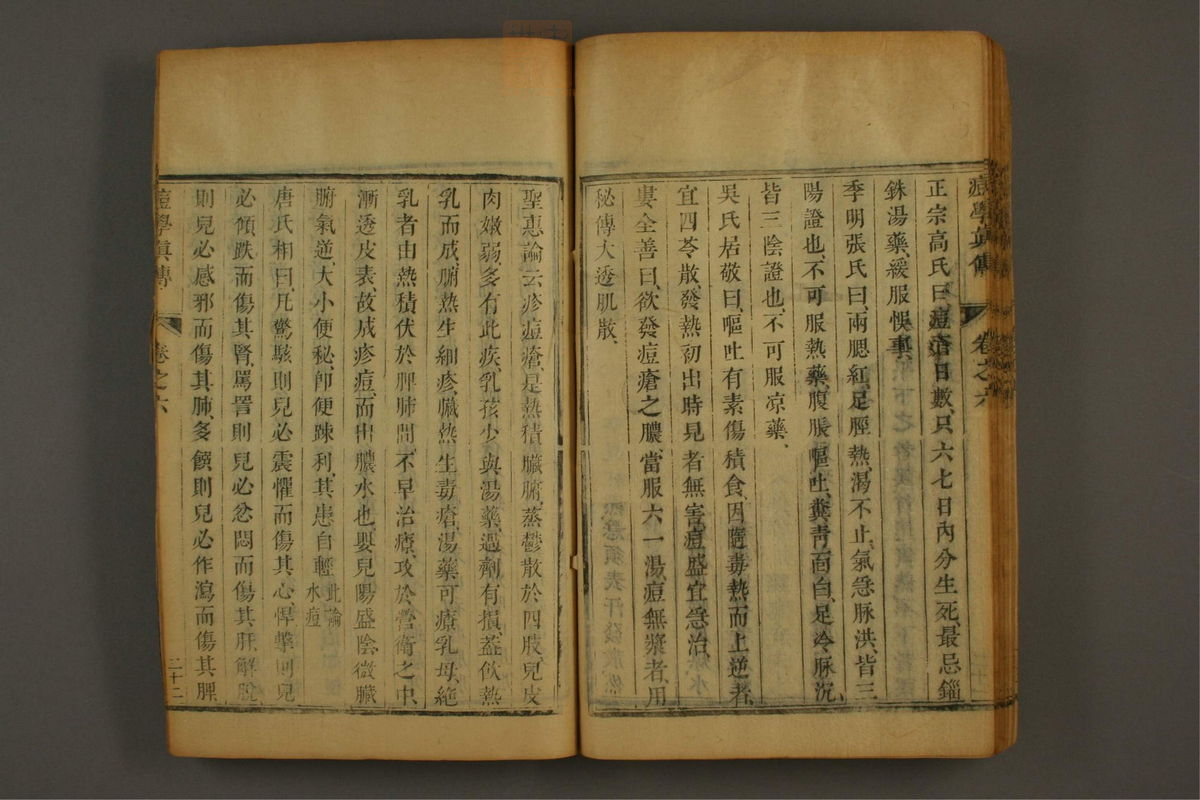 痘學眞傳 卷之六
正宗高氏曰、痘瘡日數、只六七日內分生死、最忌錙
銖湯藥、緩服悞事、
季明張氏曰、兩腮紅、足脛熱、渴不止、氣急脉洪、皆三
陽證也、不可服熱藥、腹脹嘔吐、糞靑面白、足冷脉沉、
皆三陰證也、不可服凉藥、
吳氏居敬曰、嘔吐有素傷積食、因隨毒熱而上逆者、
宜四苓散、發熱初出時見者無害、痘盛宜急治、
婁全善曰、欲發痘瘡之膿、當服六一湯、痘無漿者、用
秘傳大透肌散、
聖惠論云、疹痘瘡、是熱積臟腑、蒸鬱散於四肢、兒皮
肉嫩弱、多有此疾、乳孩少與湯藥、過劑有損、蓋飮熱
乳而成、腑熱生細疹、臟熱生毒瘡、湯藥可療、乳母絕
乳者、由熱積伏於脾肺間、不早治療、攻於營衛之中、
漸透皮表、故成疹痘、而出膿水也、嬰兒陽盛陰微、臟
腑氣逆、大小便秘、卽便踈利、其患自輕 此論水痘
唐氏相曰、凡驚駭則兒必震懼而傷其心、悍擊則兒
必傾跌而傷其腎、罵詈則兒必忿悶而傷其肝、解脫
則兒必感邪而傷其肺、多餒則兒必作瀉而傷其脾
痘學眞傳 卷之六 二十二